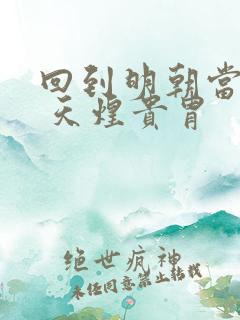 回到明朝當
天煌貴胄
绝世疯神
未经同意禁止转载